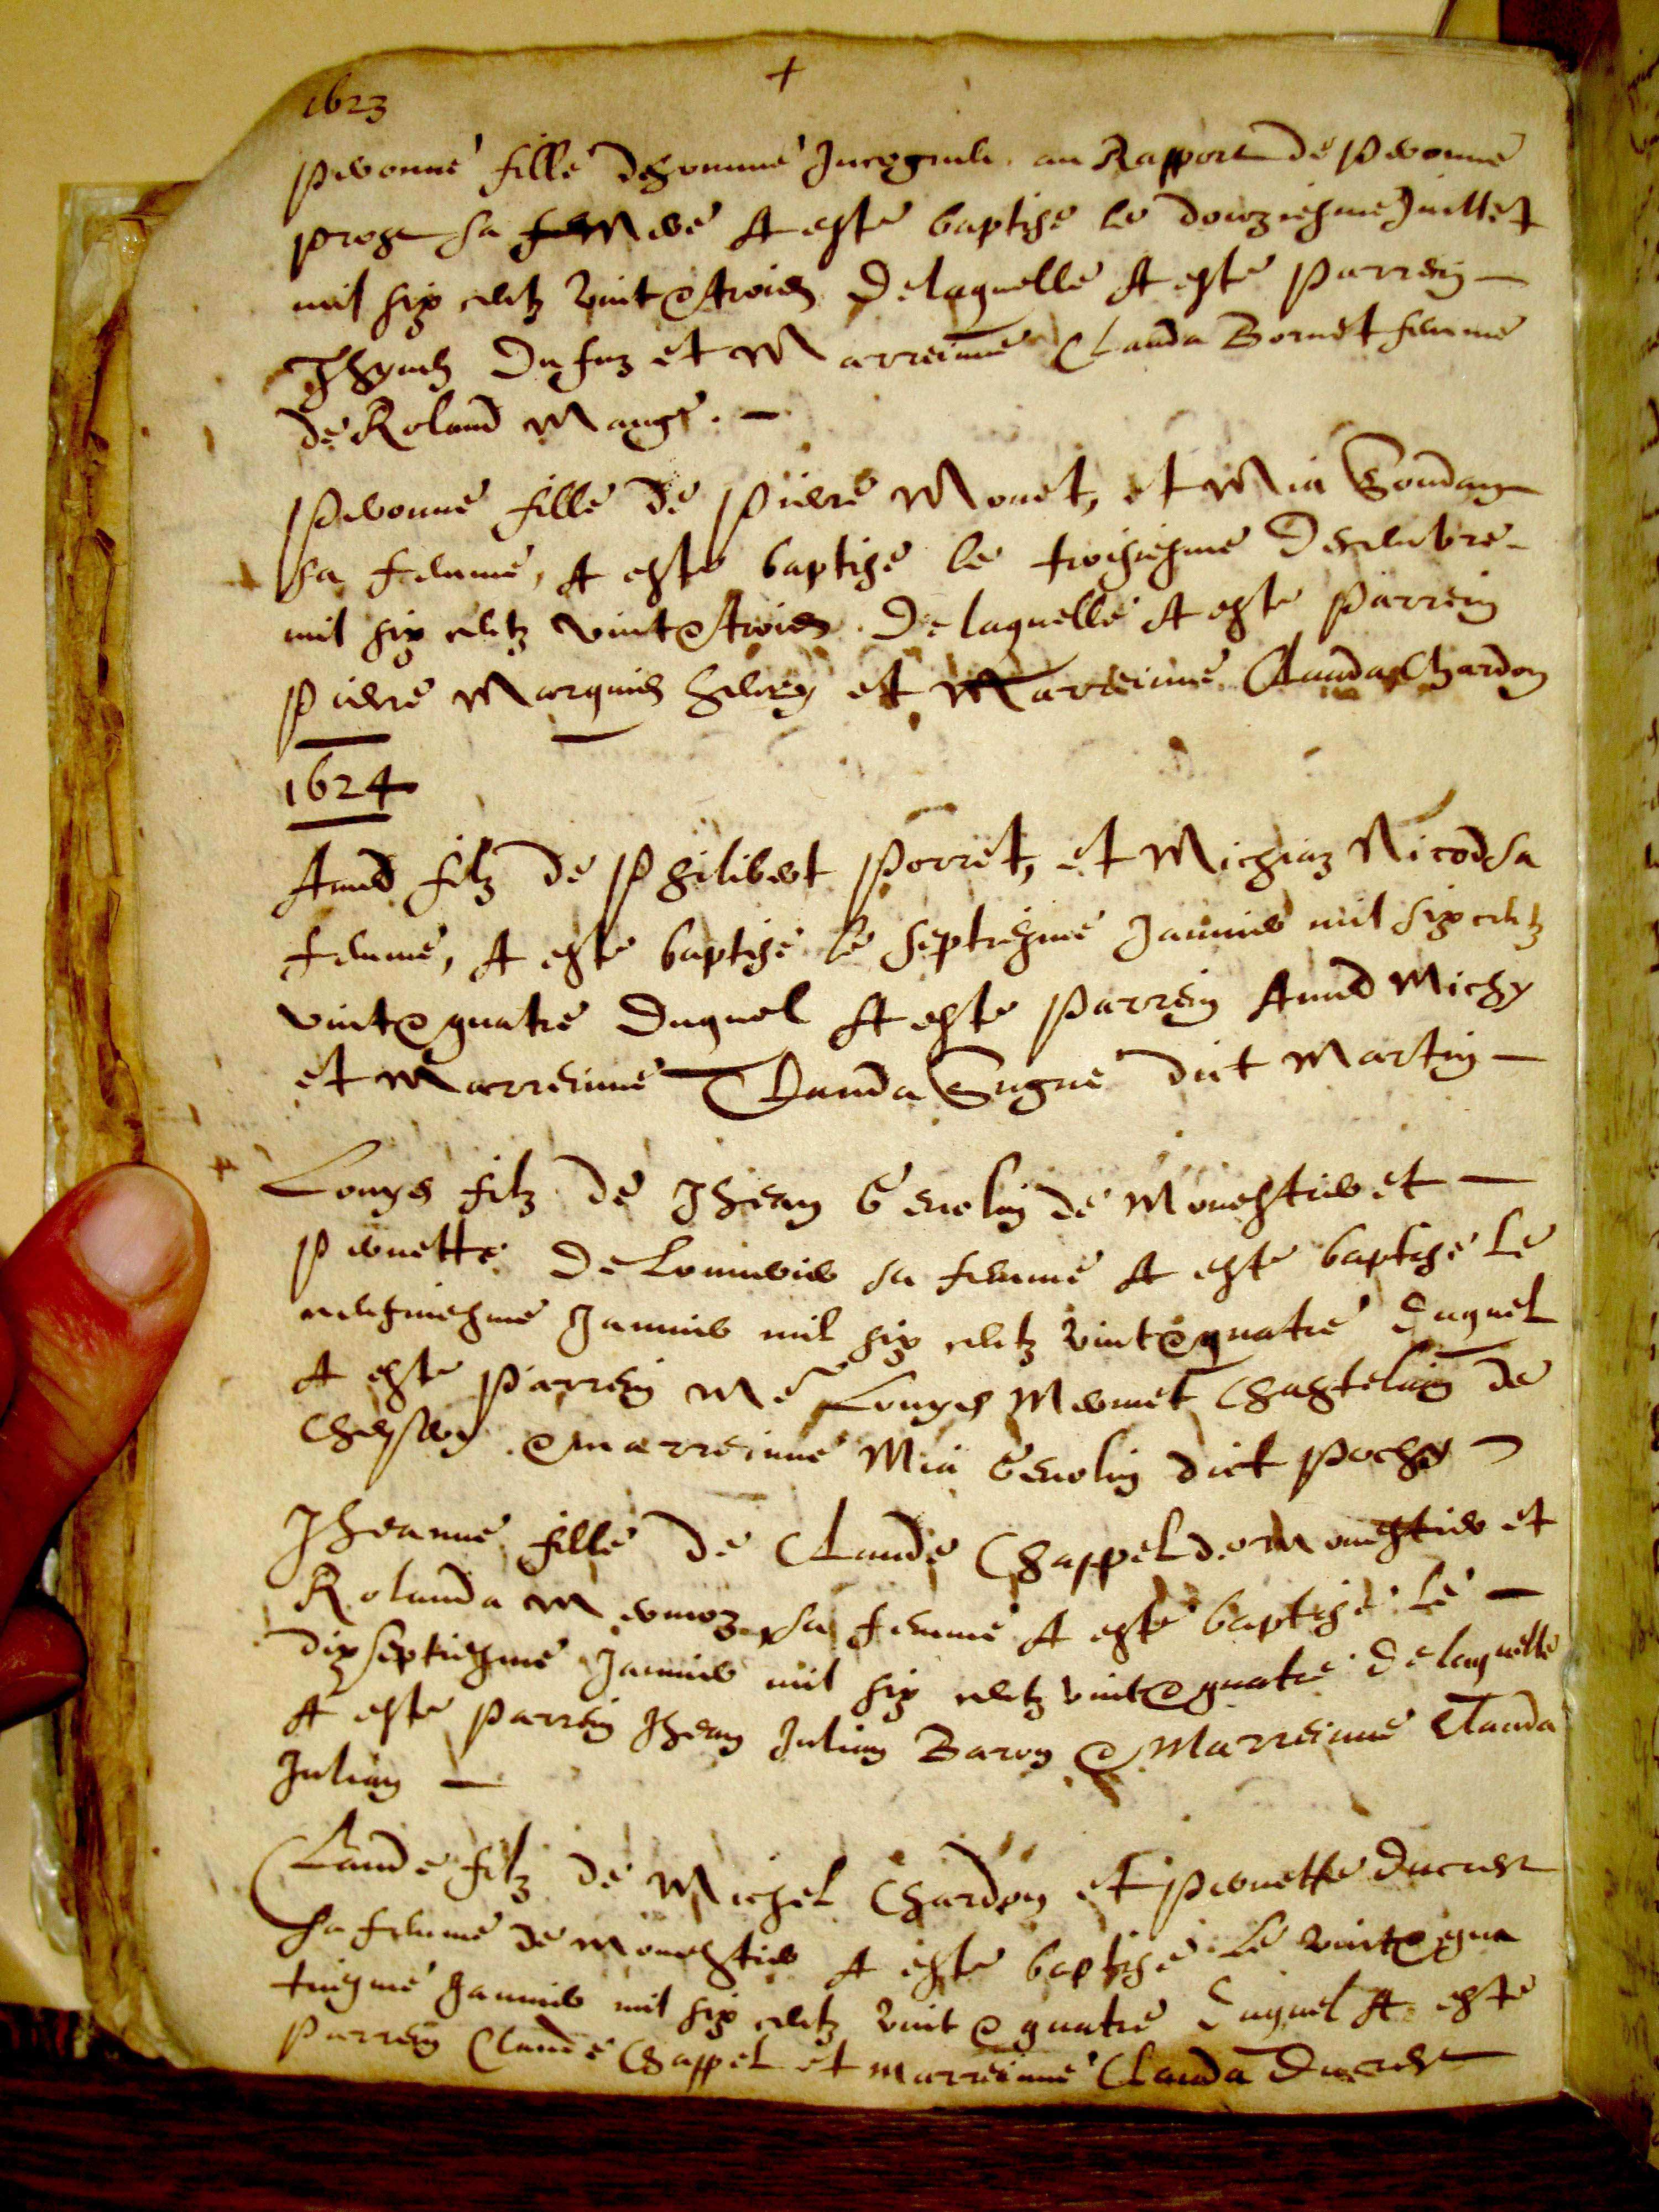 1623
+
Pernonne fille dhomme Incogneu au Rapport de Pernonne
sa mere A este baptise le douziesme Juillet
mil six centz vint & trois Delaquelle A este Parrein
et Marreinne Clauda Bornet femme
de Roland Mange.
Pernonne fille de Pierre Monet, et Mia
sa femme, A este baptise le troisiesme Decembre
mil six centz vint & trois Delaquelle A este Parrein
Pierre Marquis et Marreinne Clauda Chardon
1624
Amed filz de Philibert Porret, et Michiaz Nicod sa
femme, A este baptise le septiesme Janvier mil six centz
vint & quatre Duquel A este Parrein Amed Michy
et Marreinne Clauda dict Martin
Louys filz de Jhean Genolin de Monestier et
Pernette sa femme A este baptise le
neufviesme Janvier mil six centz vint & quatre duquel
A este Parrein Me Louys Mermet Chastelain de
& marreinne Mia Genolin dict Pochy
Jheanne fille de Claude Chappel de Monestier et
Rolanda Mermoz sa femme A este baptise le
dixseptiesme Janvier mil six centz vint & quatre delaquelle
A este Parrein Jhean Julian Baron & Marreinne Clauda
Julian
Claude filz de Michel Chardon et Pernette Ducrest
sa femme de Monestier A este baptise le vint & qua
triesme Janvier mil six centz vint & quatre duquel A este
Parrein Claude Chappel et Marreinne Clauda Ducrest